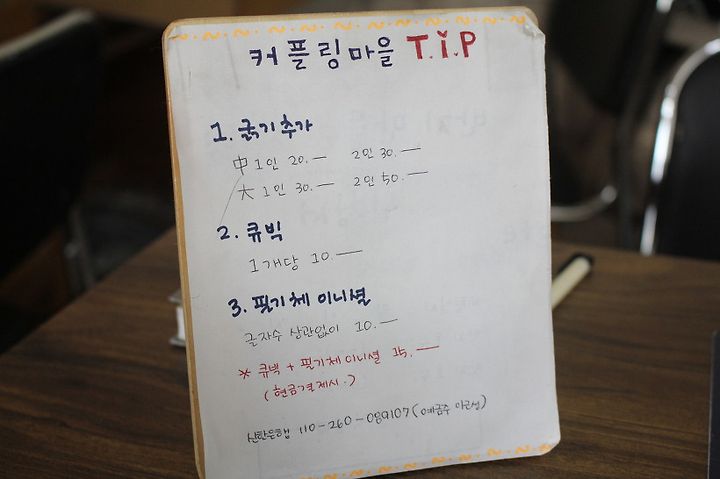 커플링마을 T.i.P
1. 굵기추가
中 1인 20.— 2인 30.—
大 1인 30.— 2인 50.—
2. 큐빅
1개당 10.—
3. 필기체 이니셜
글자수 상관없이 10.—
※ 큐빅 + 필기체 이니셜 15.—
(현금결제시.)
신한은행 110-260-089107 (예금주